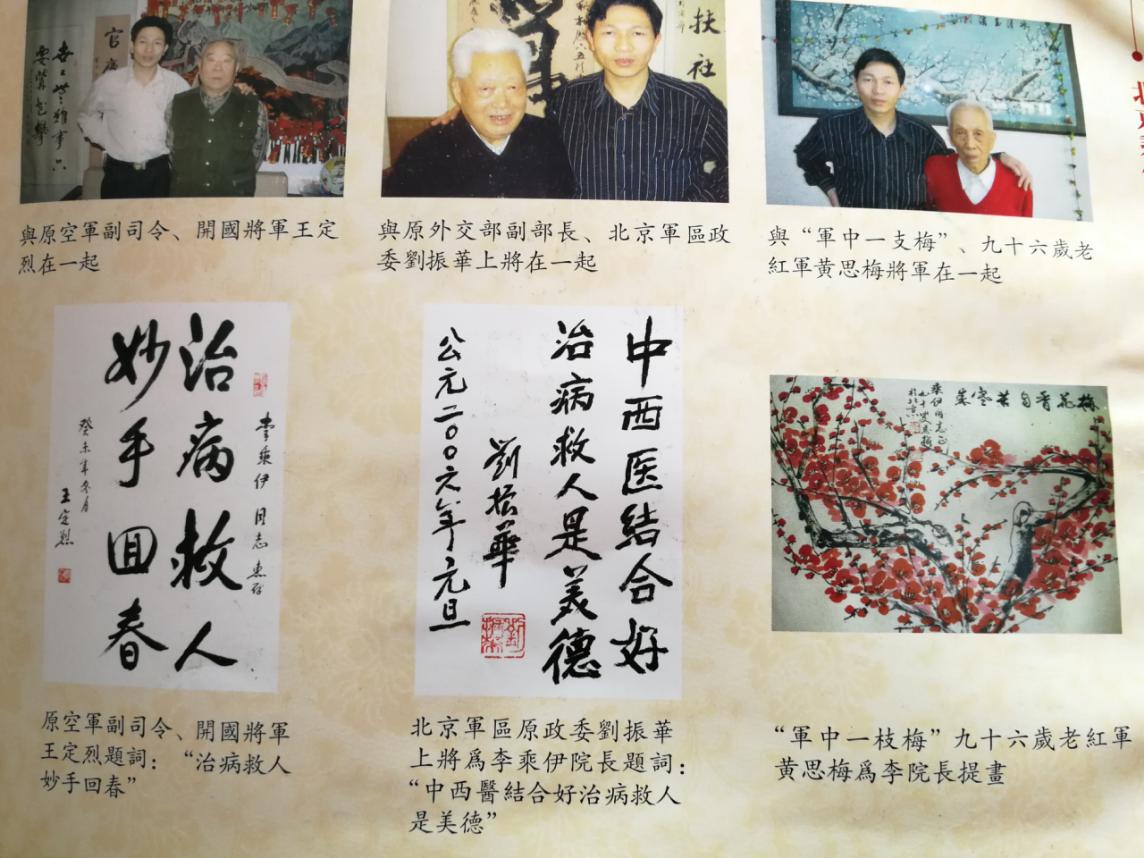 官
扶社
與原空軍副司令、開國將軍王定
烈在一起
與原外交部副部長、北京軍區政
委劉振華上將在一起
與“軍中一支梅”、九十六歲老
紅軍黄思梅將軍在一起
李乘伊同志惠存
治病救人
妙手回春
癸未年冬月
王定烈
中西医结合好
治病救人是美德
劉振華
公元二００六年元旦
梅花香自苦寒來
乘伊同志正
原空軍副司令、開國將軍
王定烈題詞：“治病救人
妙手回春”
北京軍區原政委劉振華
上將爲李乘伊院長題詞：
“中西醫結合好治病救人
是美德”
“軍中一枝梅”九十六歲老紅軍
黄思梅爲李院長提畫